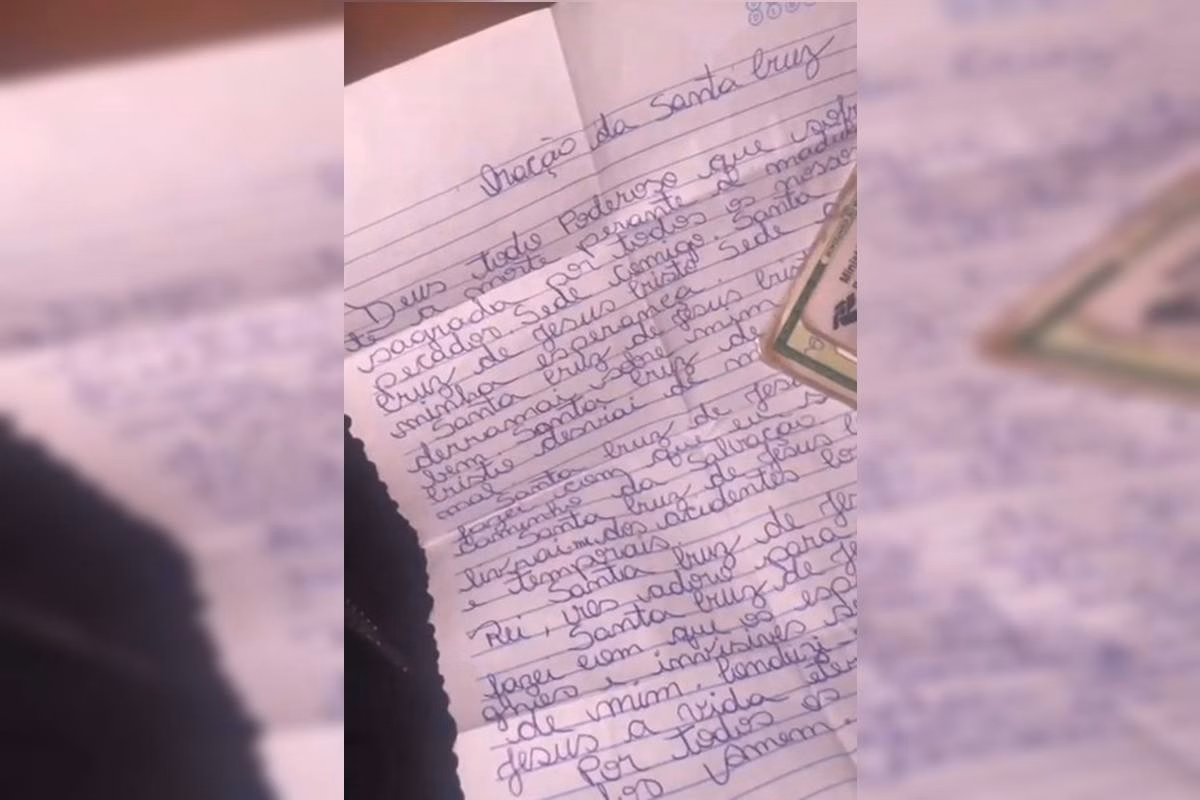 Oração da Santa Cruz
Deus todo Poderoso que
te a morte perante a
sagrada por todos os nosso
pecados. Sede comigo. Santa
Cruz de Jesus Cristo Sede a
minha esperança.
Santa Cruz de Jesus Cris
derramai sobre mim
bem. Santa Cruz de
Cristo desviai de m
mal
Santa Cruz de Jesu
fazei com que eu s
caminho da salvação
Santa Cruz de Jesus
livrai-m dos acidentes
e temporais.
Santa Cruz de Je
Rei, vos adoro para
Santa Cruz de Je
fazei com que os esp
e invisives se
de mim. Conduzi-
Jesus a vida eter
Por todos os
Amem.